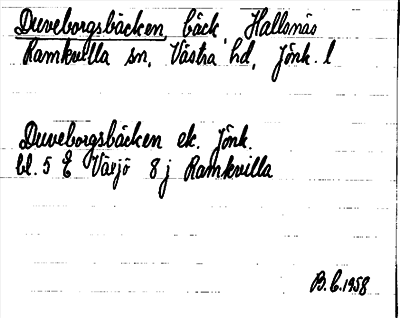 Duveborgsbäcken, bäck, Hallsnäs
Ramkvilla sn, Västra hd, Jönk. l
Duveborgsbäcken ek. Jönk.
bl. 5 E Växjö 8 j Ramkvilla
B. C. 1958